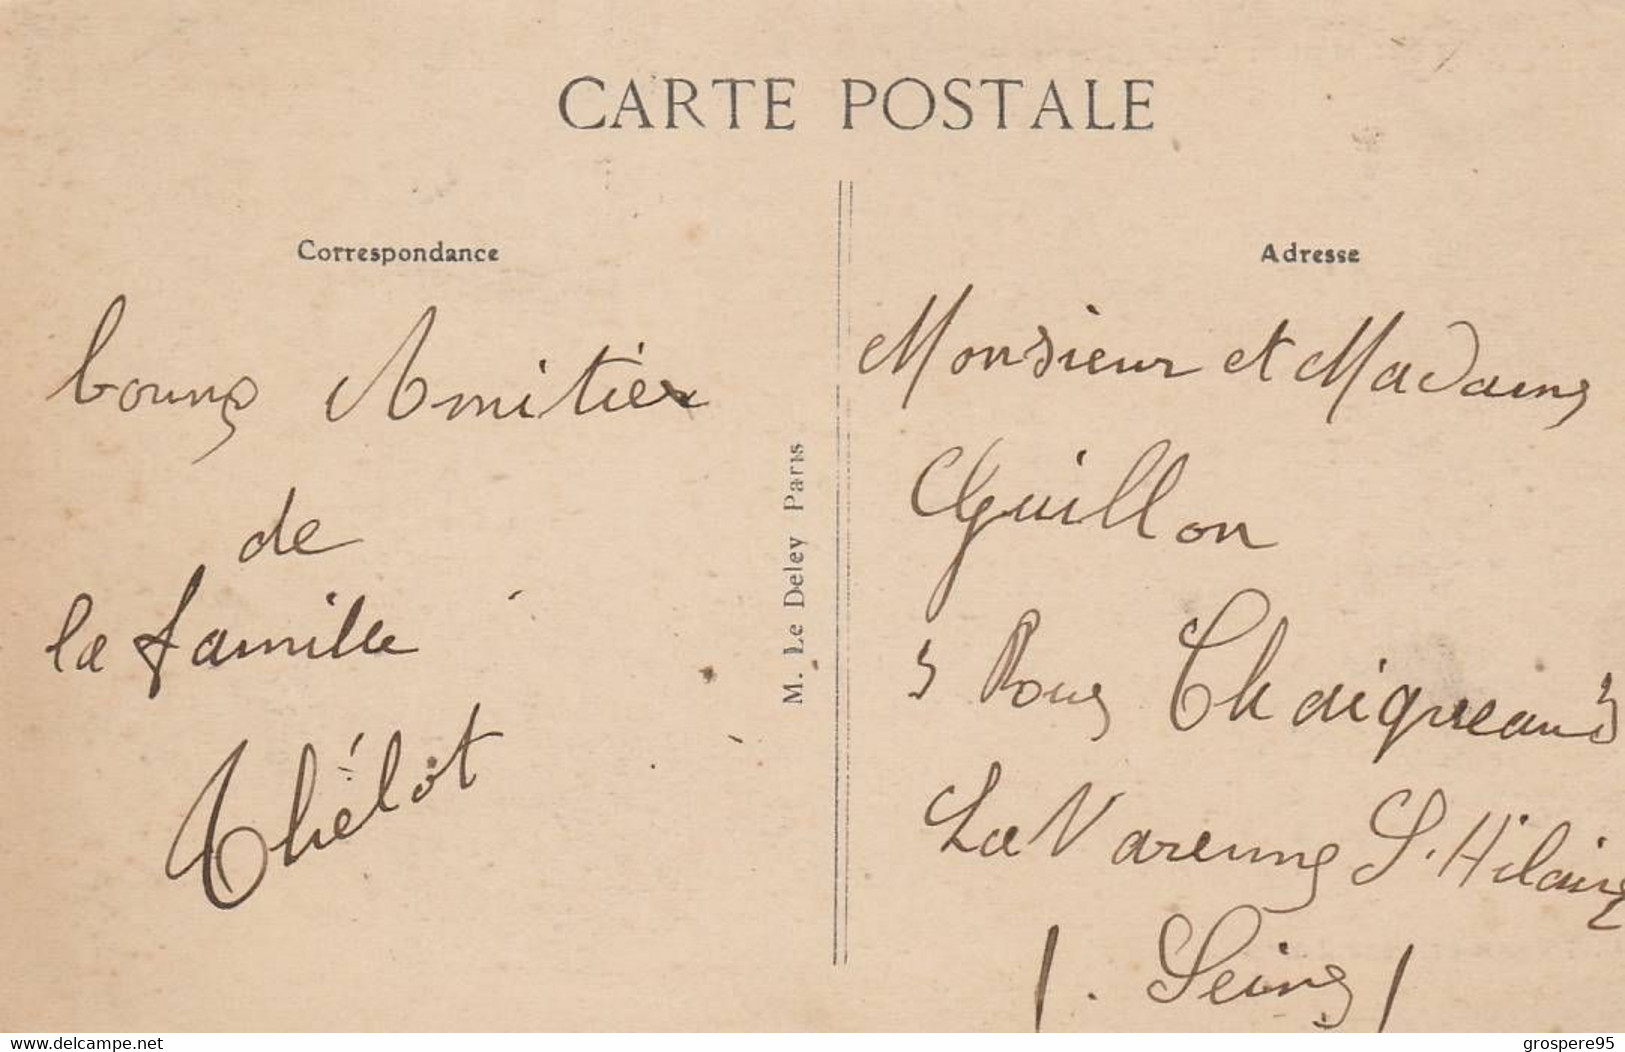 CARTE POSTALE
Correspondance
bonne Amitiés
de
la famille
Thélot
M. Le Deley Paris
Adresse
Monsieur et Madame
Guillon
3 Rue
La Varenne St. Hilaire
(. Seine)
delcampe.net
grospere95